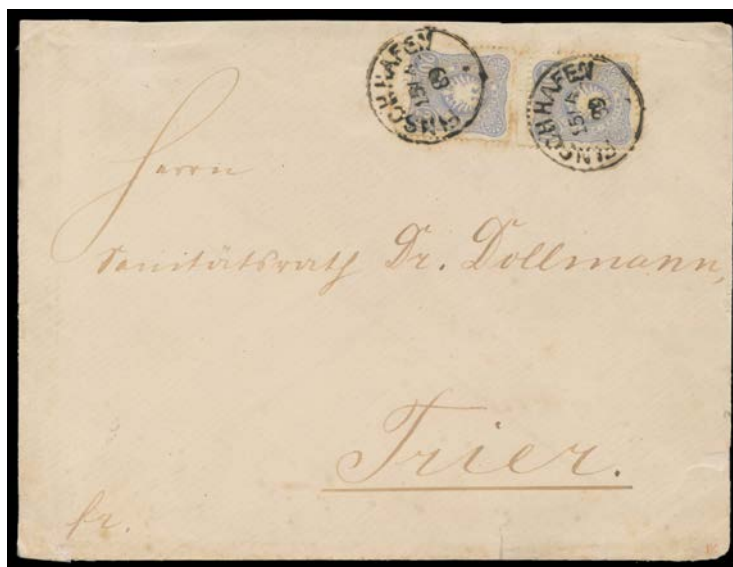 FINSCHHAFEN
15/4
89
FINSCHHAFEN
15/4
89
Herrn
Sanitätsrath Dr. Dollmann,
Trier.
fr.